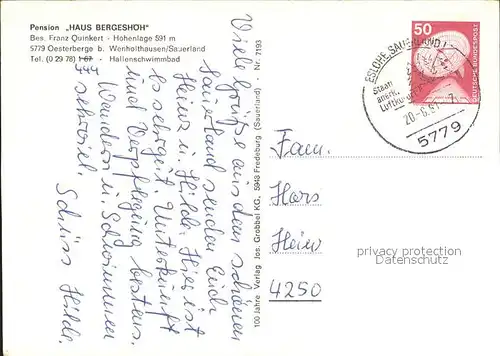 Pension „HAUS BERGESHÖH"
Bes. Franz Quinkert - Höhenlage 591 m
5779 Oesterberge b. Wenholthausen/Sauerland
Tel. (0 29 78) 1 67 - Hallenschwimmbad
447
Viele Grüße aus dem schönen
Sauerland senden Euch
Heinz u. Hilde. Hier ist
es sehr gut. Unterkunft
und Verpflegung bestens.
Wandern u. Schwimmen
sehr viel.
Tschüss Hilde.
100 Jahre Verlag Jos. Grobbel KG., 5948 Fredeburg (Sauerland) · Nr. 7193
50
DEUTSCHE BUNDESPOST
ESLOHE, SAUERLAND 1
Staatl.
anerk.
Luftkurort
5779
Fam.
Hans
4250
privacy protection
watermark